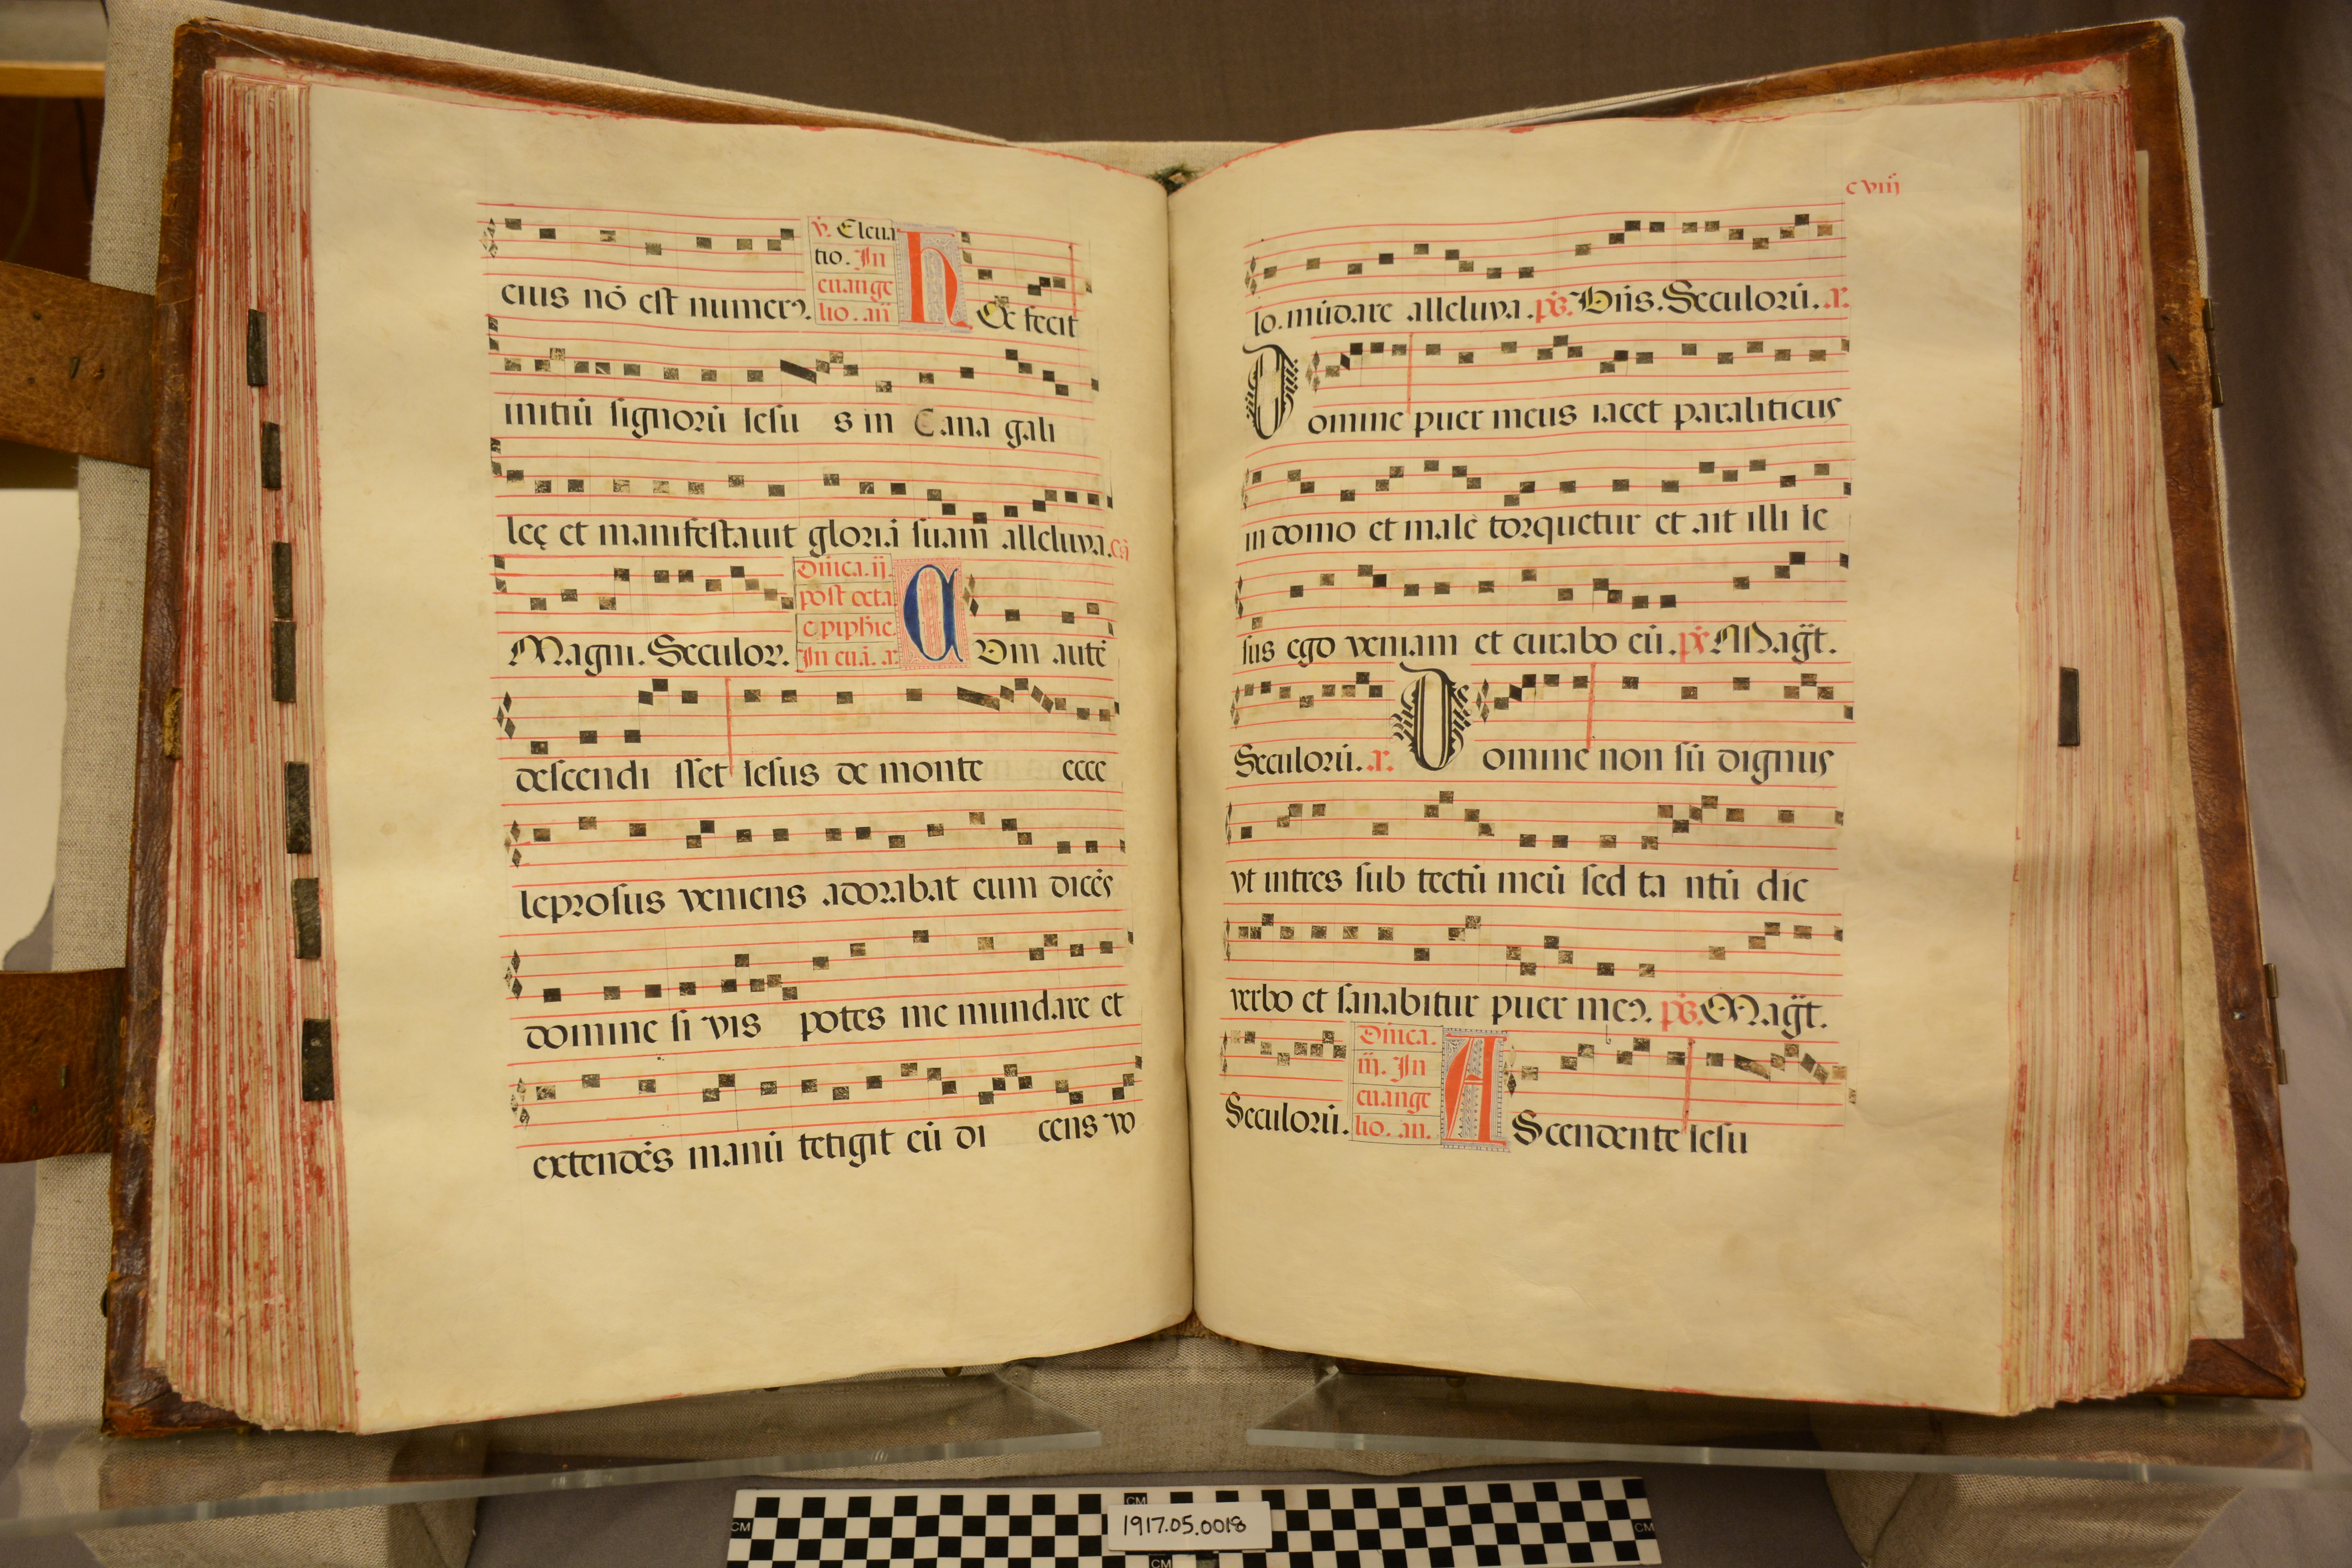 eius nō est numerꝰ.
℣. Eleua
tio. In
euange
lio. añ
h Ec fecit
initiū signorū iesu s in Cana gali
leę et manifestauit gloriā suam alleluya. Cā
Magni. Seculor.
Dñica. ij.
post octa
epiphie.
In eu.ā. a.
C Vm autē
descendi sset iesus de monte ecce
leprosus veniens adorabat eum dicēs
domine si vis potes me mundare et
extendēs manū tetigit eū di cens vo
c viij
lo. mūdare alleluya. ps. Dñs. Seculorū. a.
D omine puer meus iacet paraliticus
in domo et male torquetur et ait illi ie
sus ego veniam et curabo eū. ps. Magt.
Seculorū. a. D omine non sū dignus
vt intres sub tectū meū sed ta ntū dic
verbo et sanabitur puer meꝰ. ps. Magt.
Seculorū.
Dñica.
iij. In
euange
lio. añ.
A Scendente iesu
CM
CM
1917.05.0018
CM
CM